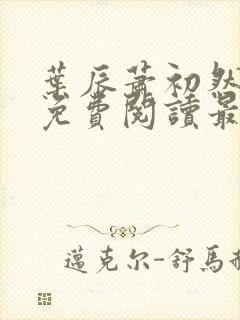 葉辰蕭初然
免費閱讀最
邁克尔-舒馬